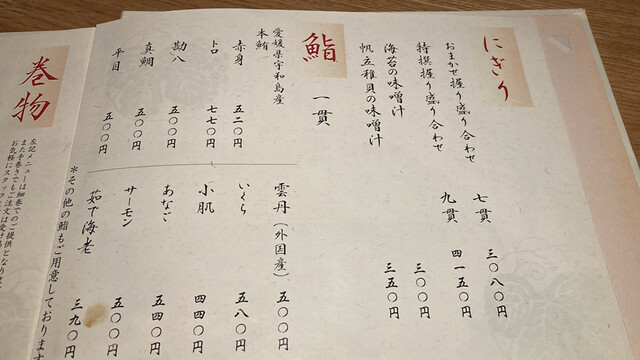 にぎり
おまかせ握り盛り合わせ 七貫 三〇八〇円
特撰握り盛り合わせ 九貫 四一五〇円
海苔の味噌汁 三〇〇円
帆立稚貝の味噌汁 三五〇円
鮨 一貫
愛媛県宇和島産
本鮪
赤身 五二〇円
トロ 七七〇円
勘八 五〇〇円
真鯛 五〇〇円
平目 五〇〇円
雲丹(外国産) 五〇〇円
いくら 五八〇円
小肌 四四〇円
あなご 五四〇円
サーモン 五〇〇円
茹で海老 三九〇円
*その他の鮨もご用意しております
巻物
左記メニューは細巻でのご提供となりま
また手巻きでもご注文は受け
お気軽にスタッフ